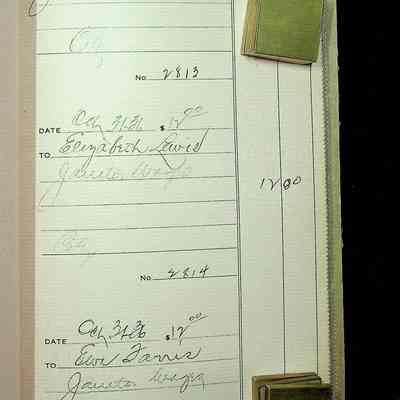 No 2813
DATE Oct 31-36 $12.00
TO Elizabeth Lewis
Janitor Wages
12 00
No 2814
DATE Oct 31-36 $12.00
TO
Janitor Wages